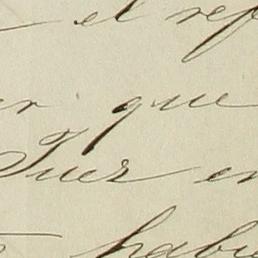 el ref
que
Juez en
habi